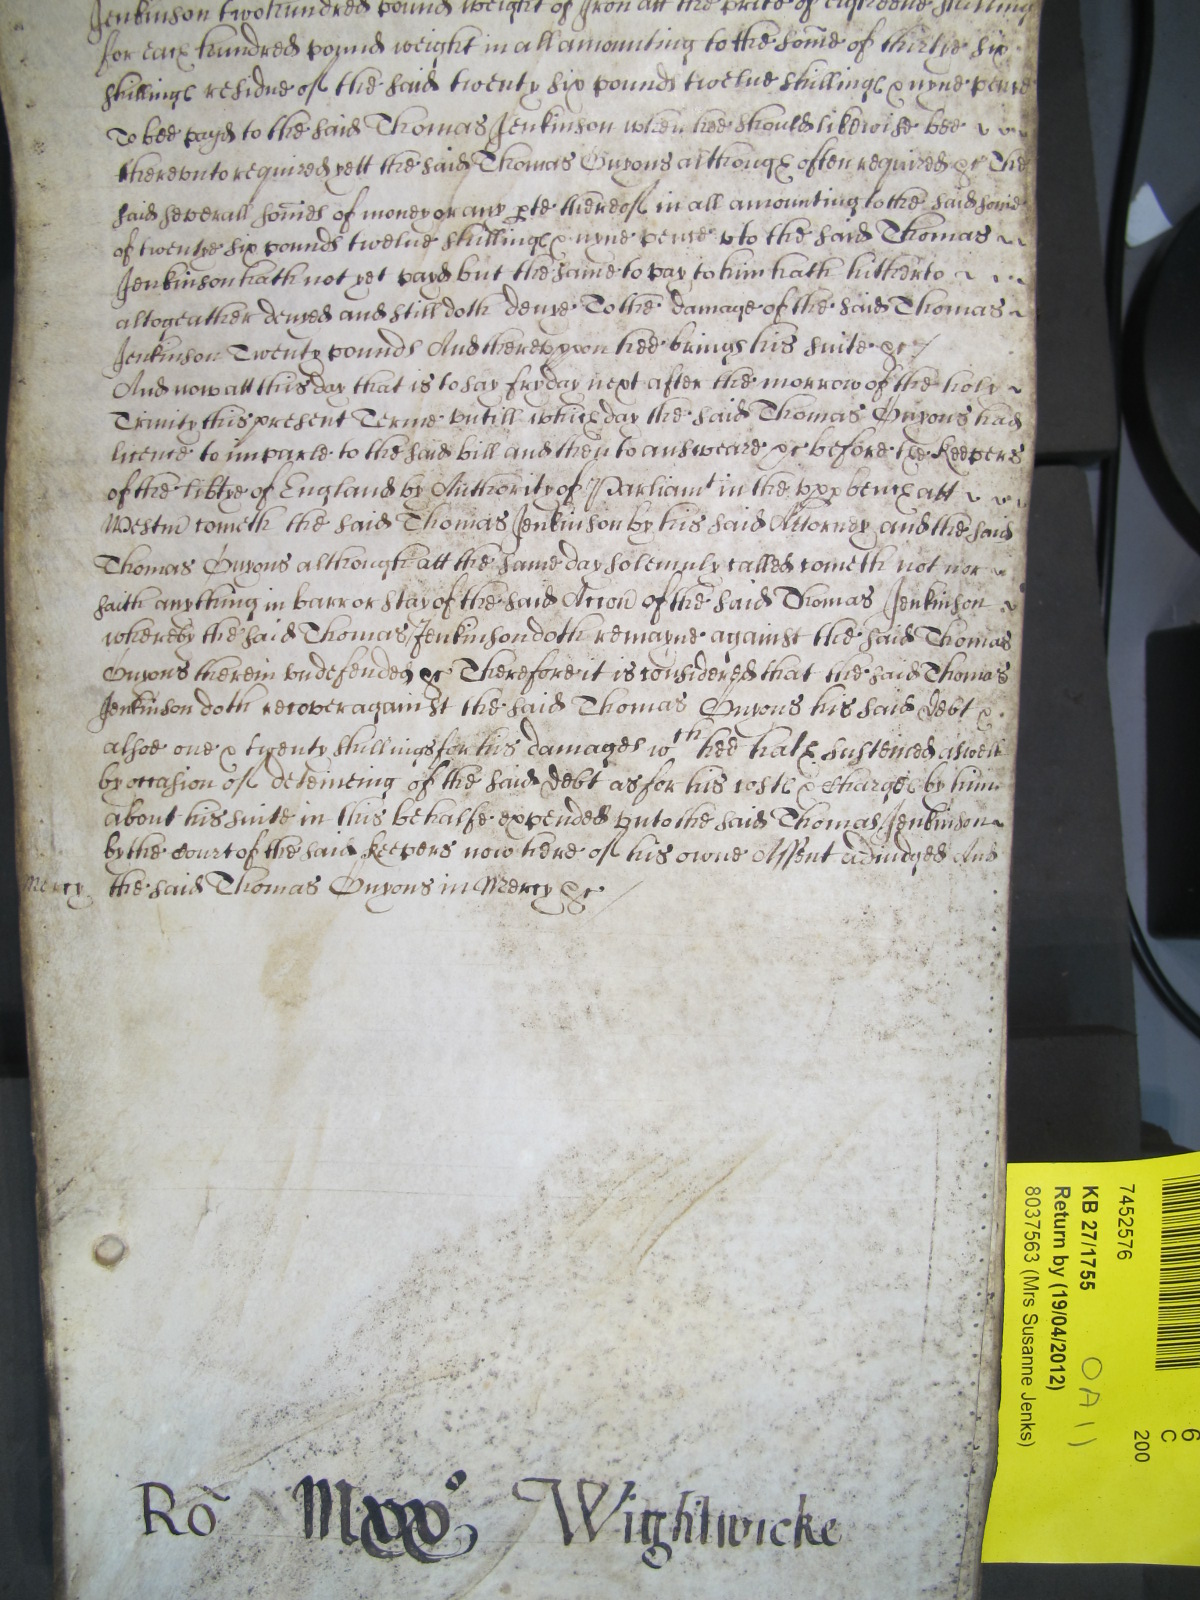 Jenkinson two hundred pound weight of Iron att the price of eighteene shillings
for each hundred pound weight in all amounting to the some of thirtie six
shillings residue of the said twenty six pounds twelue shillings & nyne pence
To bee payd to the said Thomas Jenkinson when hee should likewise bee
therevnto required yett the said Thomas Onyons although often required &c The
said severall somes of money or any pte thereof in all amounting to the said some
of twentye six pounds twelue shillings & nyne pence vto the said Thomas
Jenkinson hath not yet payd but the same to pay to him hath hitherto
altogeather denyed and still doth denye To the damage of the said Thomas
Jenkinson Twenty pounds And therevpon hee brings his suite &c
And now att this day that is to say fryday next after the morrow of the holy
Trinity this present Terme vntill which day the said Thomas Onyons had
licence to imparle to the said bill and then to answeare &c before the Keepers
of the libtye of England by Authority of Parliamt in the vpp bench att
Westm cometh the said Thomas Jenkinson by his said Attorney and the said
Thomas Onyons although att the same day solemnly called cometh not nor
saith anything in barr or stay of the said Accon of the said Thomas Jenkinson
whereby the said Thomas Jenkinson doth remayne against the said Thomas
Onyons therein vndefended &c Therefore it is considered that the said Thomas
Jenkinson doth recover against the said Thomas Onyons his said debt &
alsoe one & twenty shillings for his damages wth hee hath susteined aswell
by occasion of deteineing of the said debt as for his costs & charges by him
about his suite in this behalfe expended vnto the said Thomas Jenkinson
by the Court of the said Keepers now here of his owne Assent adiudged And
Mercy the said Thomas Onyons in Mercy &c
Ro Mxxo Wightwicke
7452576
KB 27/1755 OA1)
Return by (19/04/2012)
8037563 (Mrs Susanne Jenks)
6
C
200